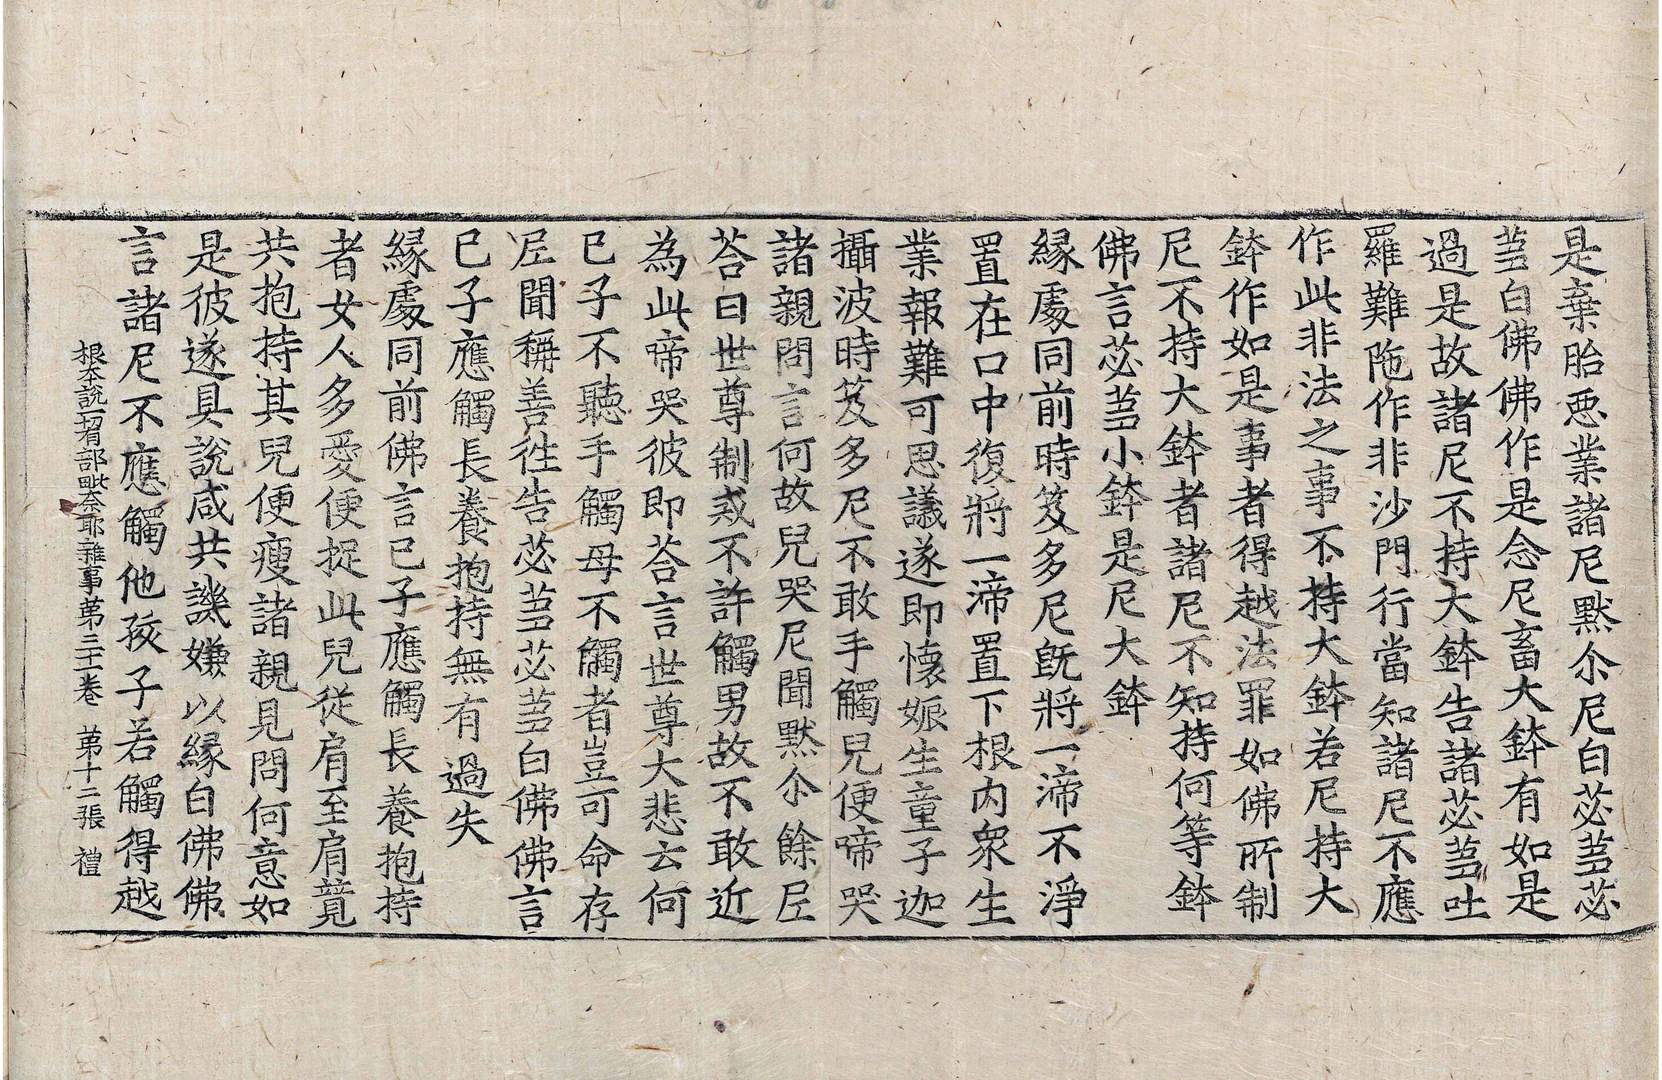 是棄胎惡業諸尼黙尒尼白苾芻苾
芻白佛佛作是念尼畜大鉢有如是
過是故諸尼不持大鉢告諸苾芻吐
羅難陁作非沙門行當知諸尼不應
作此非法之事不持大鉢若尼持大
鉢作如是事者得越法罪如佛所制
尼不持大鉢者諸尼不知持何等鉢
佛言苾芻小鉢是尼大鉢
緣處同前時笈多尼旣將一渧不淨
置在口中復將一渧置下根内衆生
業報難可思議遂即懷娠生童子迦
攝波時笈多尼不敢手觸兒便啼哭
諸親問言何故兒哭尼聞黙尒餘尼
荅曰世尊制戒不許觸男故不敢近
為此啼哭彼即荅言世尊大悲云何
已子不聽手觸母不觸者豈可命存
尼聞稱善徃告苾芻苾芻白佛佛言
已子應觸長養抱持無有過失
緣處同前佛言已子應觸長養抱持
者女人多愛便捉此兒從肩至肩竟
共抱持其兒便瘦諸親見問何意如
是彼遂具說咸共譏嫌以緣白佛佛
言諸尼不應觸他孩子若觸得越
根本說一切有部毗奈耶雜事第三十二卷　第十二張　禮